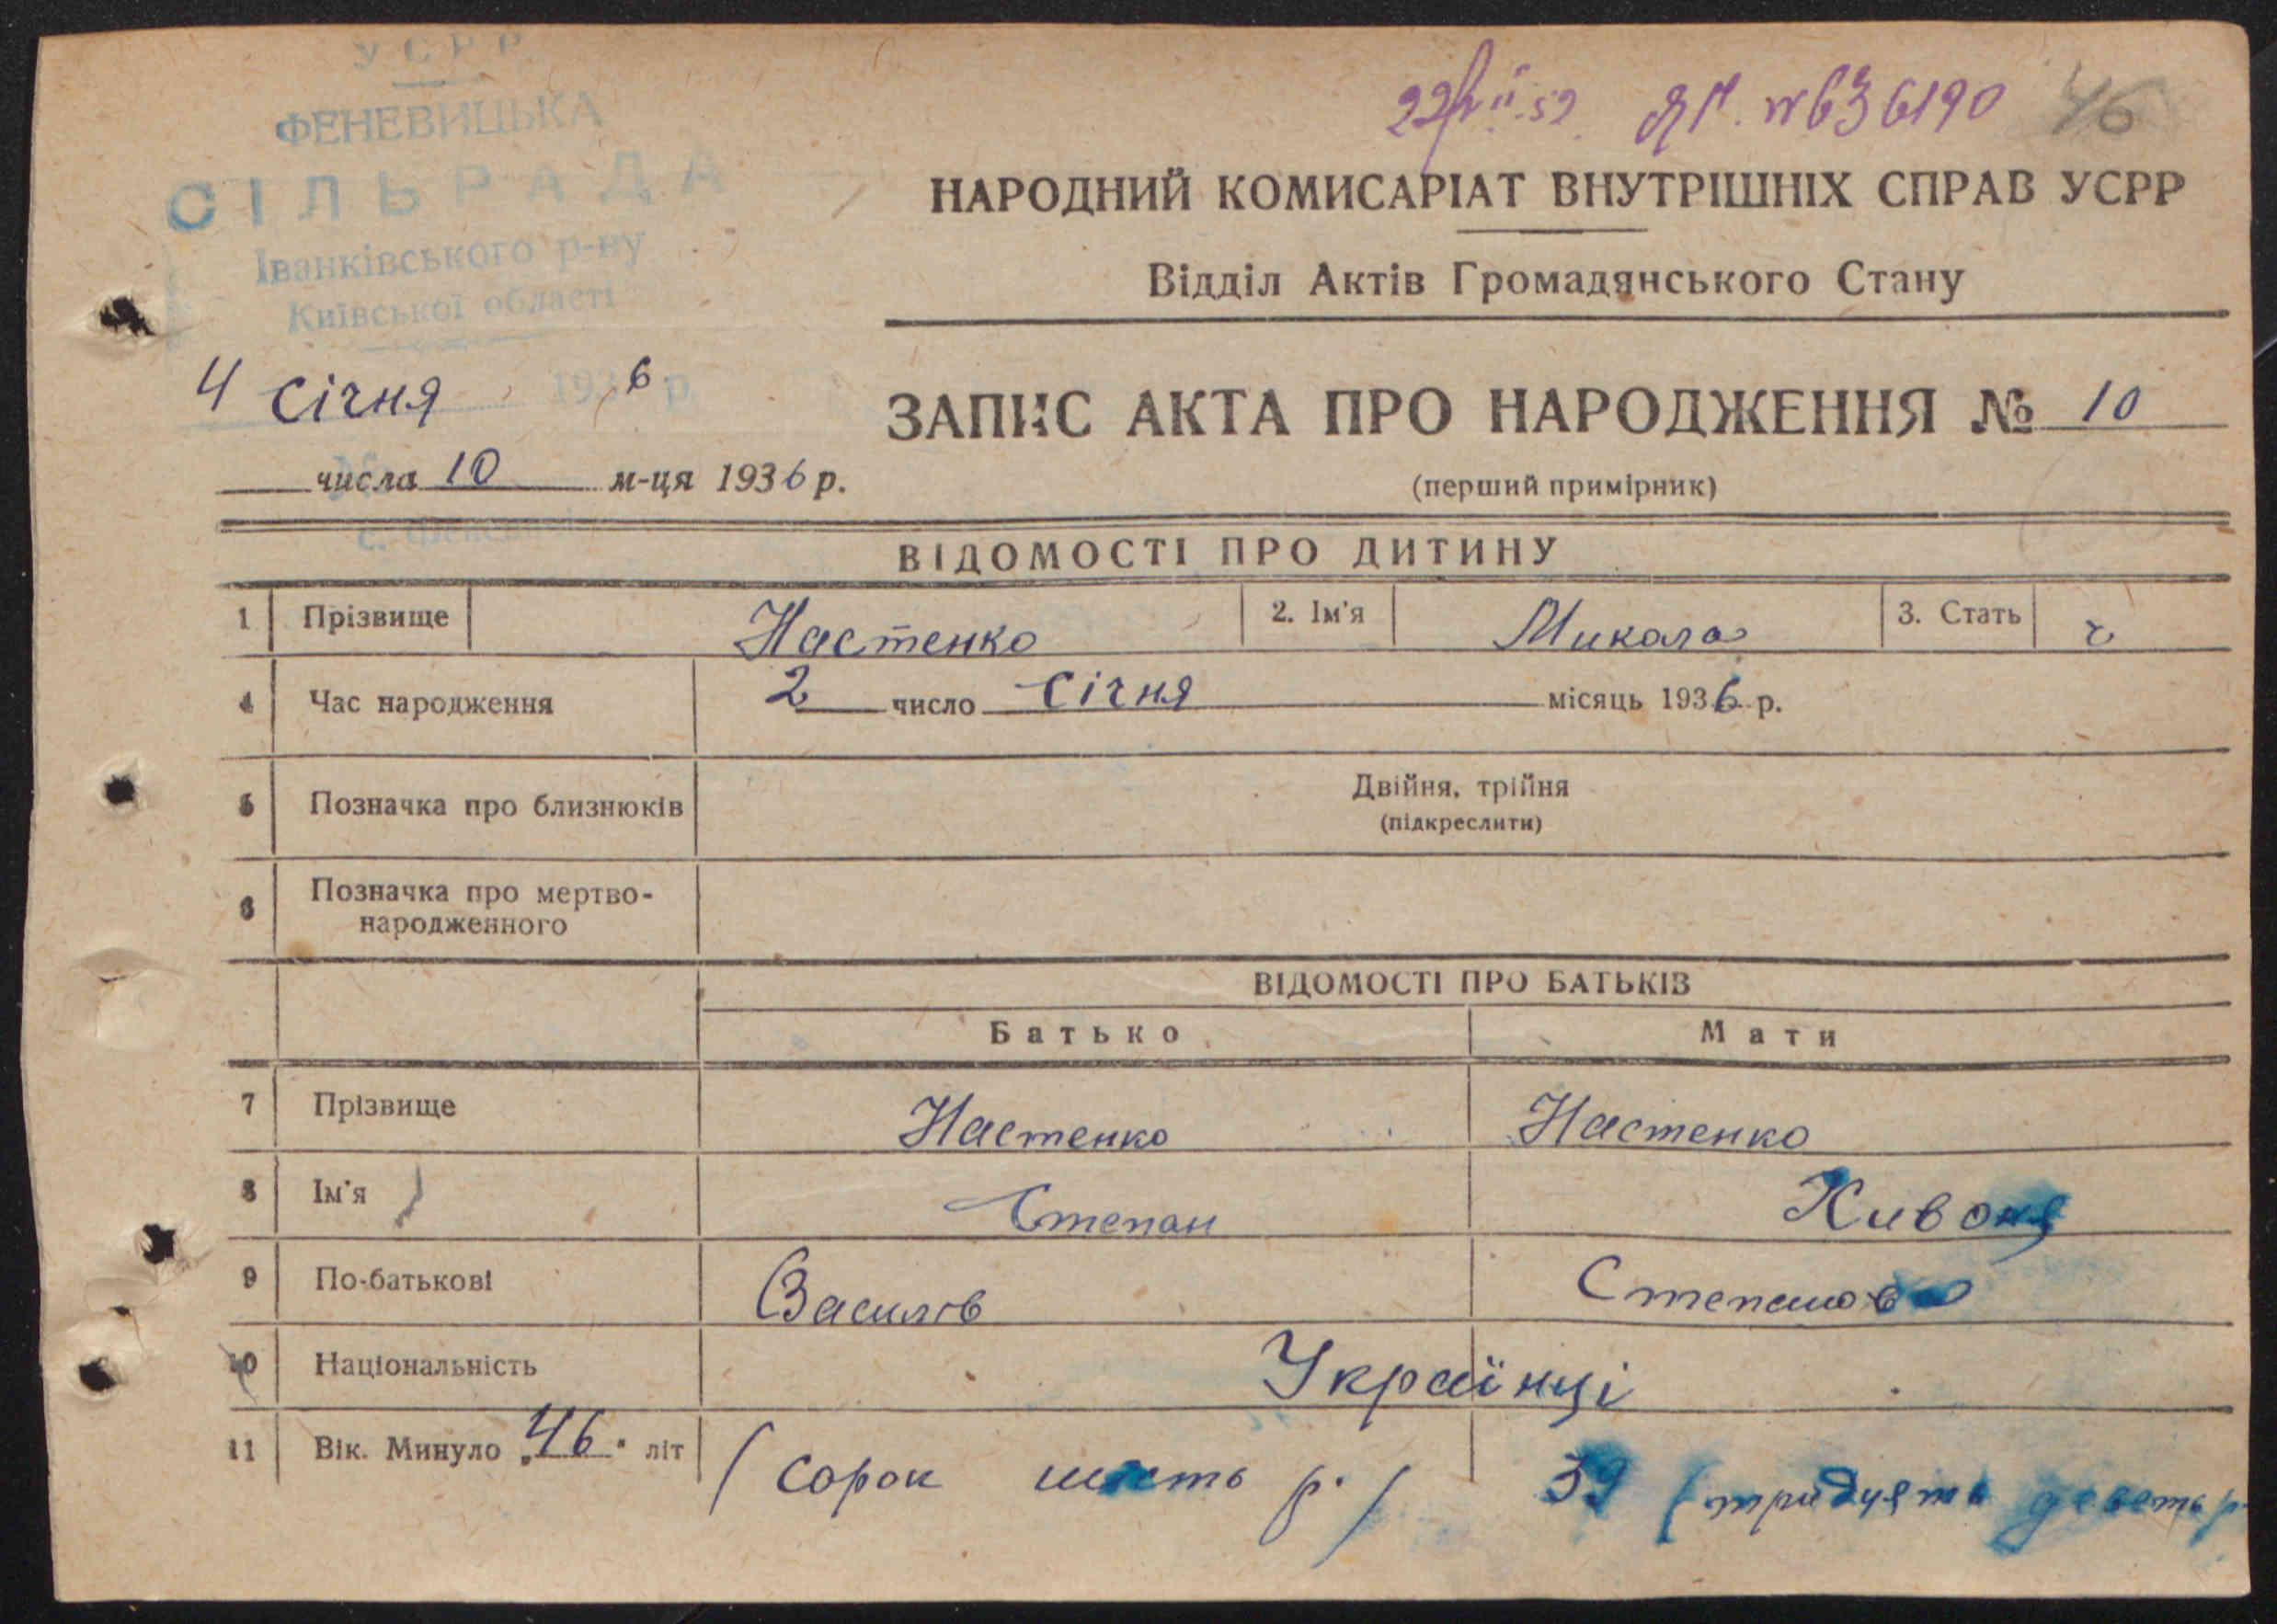 УСРР
ФЕНЕВИЦЬКА
СІЛЬРАДА
Іванківського р-ву
Київської області
4 січня 1936 р.
ЯГ. №636190 46
НАРОДНИЙ КОМИСАРІАТ ВНУТРІШНІХ СПРАВ УСРР
Відділ Актів Громадянського Стану
ЗАПИС АКТА ПРО НАРОДЖЕННЯ № 10
числа 10 м-ця 1936 р.
(перший примірник)
ВІДОМОСТІ ПРО ДИТИНУ
1 Прізвище Настенко 2. Ім'я Микола 3. Стать ч
4 Час народження 2 число січня місяць 1936 р.
5 Позначка про близнюків Двійня, трійня
(підкреслити)
6 Позначка про мертво-
народженного
ВІДОМОСТІ ПРО БАТЬКІВ
Батько Мати
7 Прізвище Настенко Настенко
8 Ім'я Степан Хивоня
9 По-батькові Василів Степанов
10 Національність Українці
11 Вік. Минуло „46" літ (сорок шість р.) 39 (тридцять деветь р.